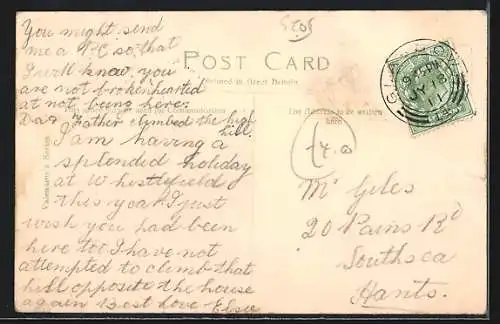 You might send
me a PC so that
I will know you
are not brokenhearted
at not being here.
Dad Father climbed the high
hill.
I am having a
splendid holiday
at Whistlefield
this year I just
wish you had been
here too I have not
attempted to climb that
hill opposite the house
again Best Love Elsie
POST CARD
Printed in Great Britain
for Communication
The Address to be written
here
Valentine's Series
JY 18
11
Mr Giles
20 Pains Rd
Southsea
Hants.